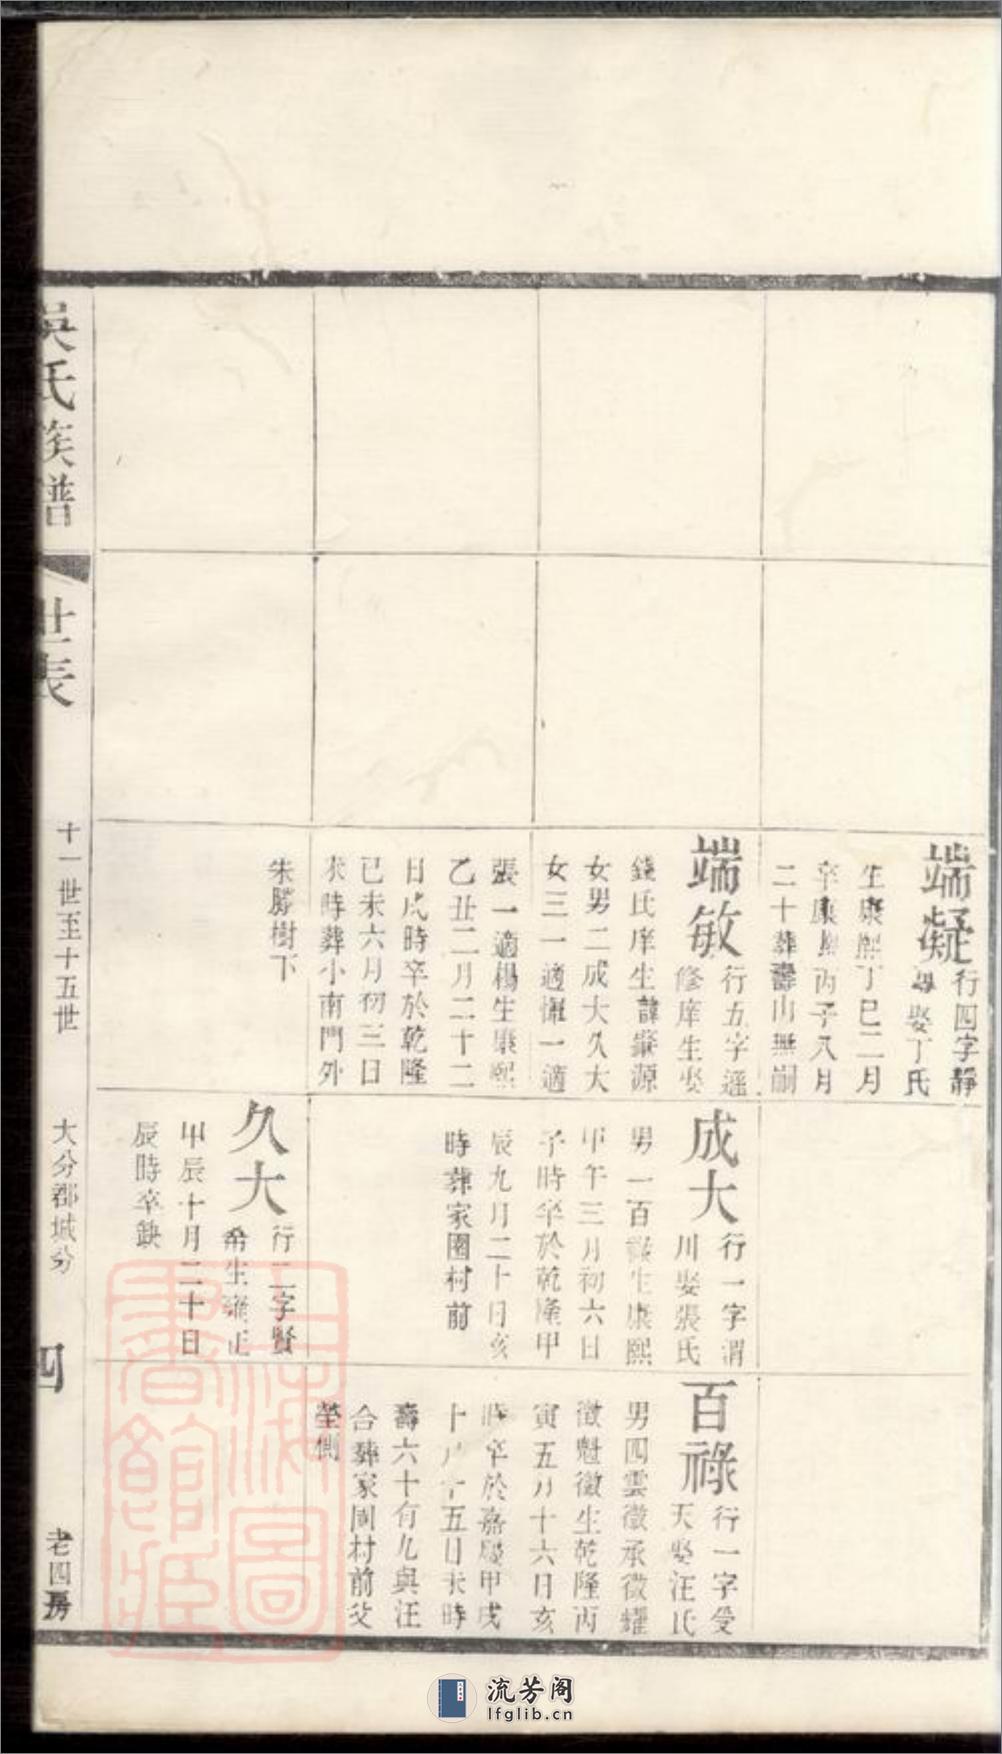 端凝
行四字靜
娶丁氏
生康熙丁巳二月
卒康熙丙子八月
二十葬壽山無嗣
端敏
行五字遜
修庠生娶
錢氏庠生諱嶽源
女男二成大久大
女三一適惲一適
張一適楊生康熙
乙丑二月二十二
日戌時卒於乾隆
己未六月初三日
未時葬小南門外
朱勝樹下
成大
行一字渭
川娶張氏
男一百祿生康熙
甲午三月初六日
子時卒於乾隆甲
辰九月二十日亥
時葬家園村前
久大
行二字賢
希生雍正
甲辰十月二十日
辰時卒缺
百祿
行一字受
天娶汪氏
男四雲徵承徵耀
徵魁徵生乾隆丙
寅五月十六日亥
時卒於嘉慶甲戌
十五日未時
壽六十有九與汪
合葬家園村前父
塋側
吳氏族譜
世表
十一世至十五世
大分郡城分
四
老四房
上海圖書館藏
流芳阁
lfglib.cn